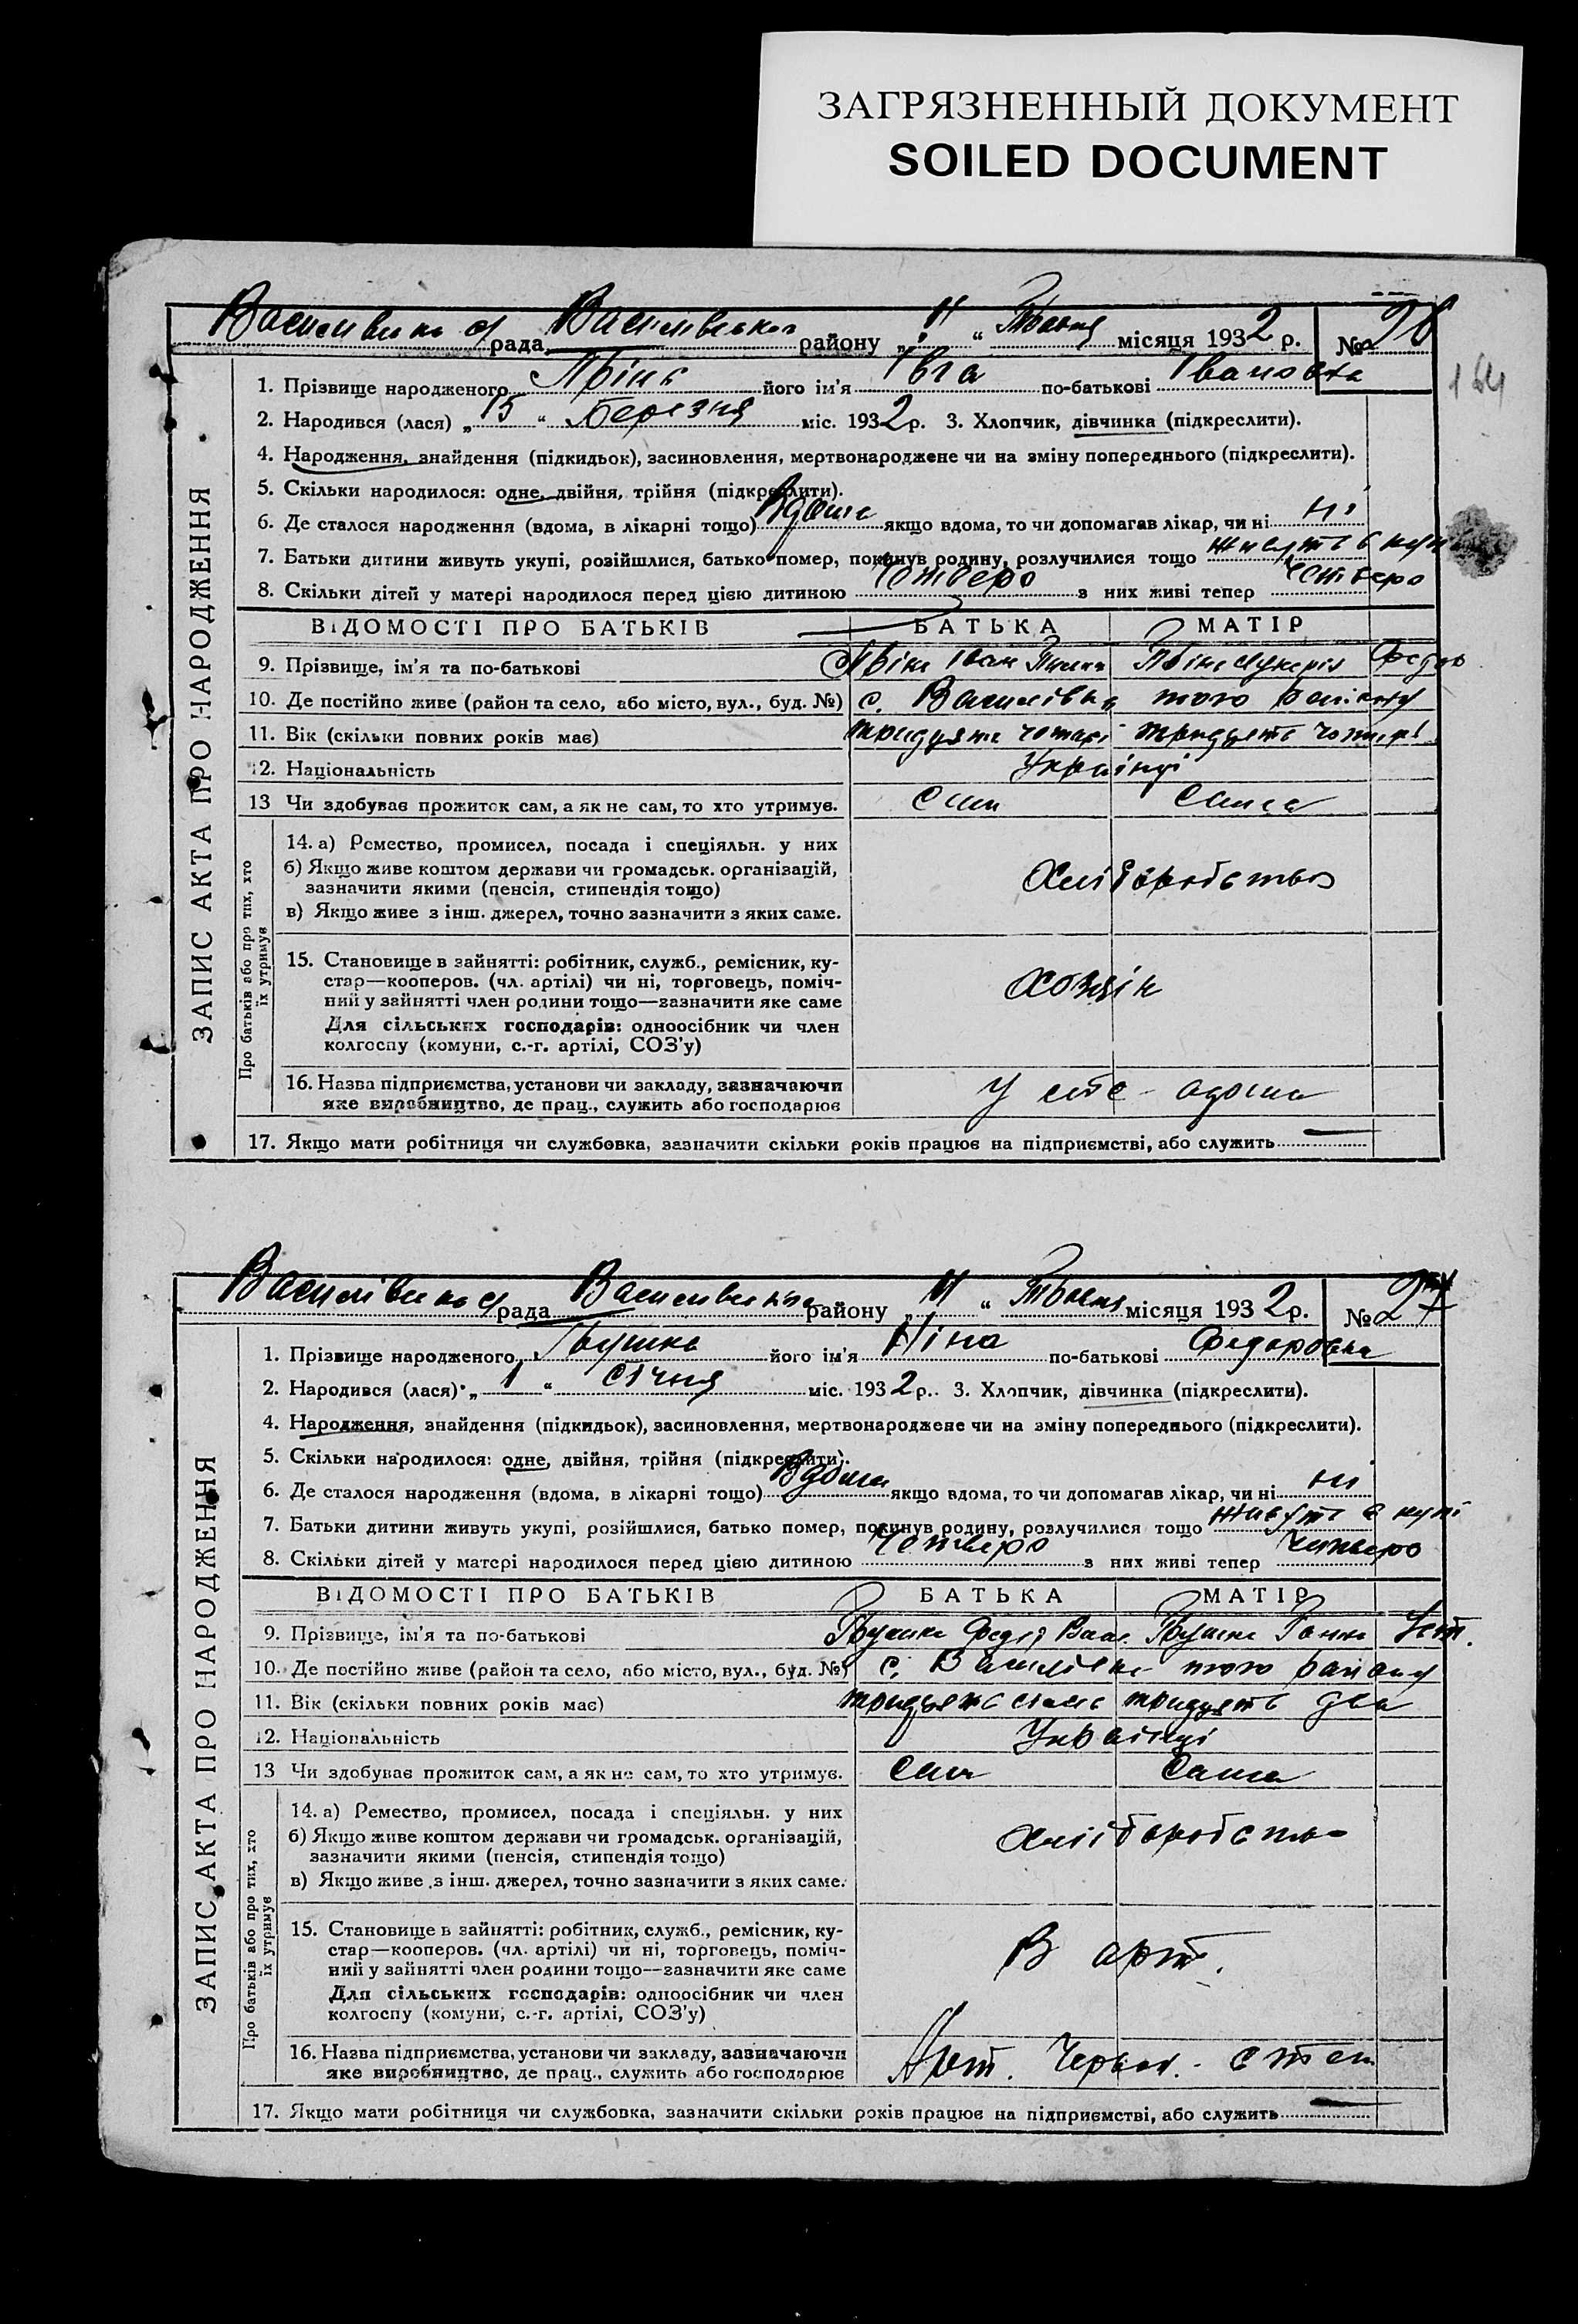 ЗАГРЯЗНЕННЫЙ ДОКУМЕНТ
SOILED DOCUMENT
рада Василівського району „ “ Травня місяця 1932 р. №
164
1. Прізвище народженого його ім'я Івга по-батькові Івановна
2. Народився (лася) „15“ Березня міс. 1932 р. 3. Хлопчик, дівчинка (підкреслити).
4. Народження, знайдення (підкидьок), засиновлення, мертвонароджене чи на зміну попереднього (підкреслити).
5. Скільки народилося: одне, двійня, трійня (підкреслити).
6. Де сталося народження (вдома, в лікарні тощо) Вдома якщо вдома, то чи допомагав лікар, чи ні ні
7. Батьки дитини живуть укупі, розійшлися, батько помер, покинув родину, розлучилися тощо живуть в купі
8. Скільки дітей у матері народилося перед цією дитиною Четверо з них живі тепер Четверо
ВІДОМОСТІ ПРО БАТЬКІВ БАТЬКА МАТІР
9. Прізвище, ім'я та по-батькові Іван Лукерія Федор
10. Де постійно живе (район та село, або місто, вул., буд. №) с. Василівка того району
11. Вік (скільки повних років має) тридцять чотирі тридцять чотирі
12. Національність Українці
13 Чи здобуває прожиток сам, а як не сам, то хто утримує. Сам Сама
14. а) Ремество, промисел, посада і спеціяльн. у них
б) Якщо живе коштом держави чи громадськ. організацій,
зазначити якими (пенсія, стипендія тощо) Хліборобство
в) Якщо живе з інш. джерел, точно зазначити з яких саме.
15. Становище в зайнятті: робітник, служб., ремісник, ку-
стар—кооперов. (чл. артілі) чи ні, торговець, поміч-
ний у зайнятті член родини тощо—зазначити яке саме Хозяін
Для сільських господарів: одноосібник чи член
колгоспу (комуни, с.-г. артілі, СОЗ'у)
16. Назва підприємства, установи чи закладу, зазначаючи
яке виробництво, де прац., служить або господарює У себе вдома
17. Якщо мати робітниця чи службовка, зазначити скільки років працює на підприємстві, або служить —
ЗАПИС АКТА ПРО НАРОДЖЕННЯ
Про батьків або про тих, хто
їх утримує
рада Василівського району „ “ Травня місяця 1932 р. № 27
1. Прізвище народженого його ім'я Ніна по-батькові Федоровна
2. Народився (лася) „1“ Січня міс. 1932 р. 3. Хлопчик, дівчинка (підкреслити).
4. Народження, знайдення (підкидьок), засиновлення, мертвонароджене чи на зміну попереднього (підкреслити).
5. Скільки народилося: одне, двійня, трійня (підкреслити).
6. Де сталося народження (вдома, в лікарні тощо) Вдома якщо вдома, то чи допомагав лікар, чи ні ні
7. Батьки дитини живуть укупі, розійшлися, батько помер, покинув родину, розлучилися тощо живуть в купі
8. Скільки дітей у матері народилося перед цією дитиною Четверо з них живі тепер Четверо
ВІДОМОСТІ ПРО БАТЬКІВ БАТЬКА МАТІР
9. Прізвище, ім'я та по-батькові Федір Вас. Ганна
10. Де постійно живе (район та село, або місто, вул., буд. №) с. Василівка того району
11. Вік (скільки повних років має) тридцять сімь тридцять два
12. Національність Українці
13 Чи здобуває прожиток сам, а як не сам, то хто утримує. Сам Сама
14. а) Ремество, промисел, посада і спеціяльн. у них
б) Якщо живе коштом держави чи громадськ. організацій,
зазначити якими (пенсія, стипендія тощо) Хліборобство
в) Якщо живе з інш. джерел, точно зазначити з яких саме.
15. Становище в зайнятті: робітник, служб., ремісник, ку-
стар—кооперов. (чл. артілі) чи ні, торговець, поміч-
ний у зайнятті член родини тощо—зазначити яке саме В арт.
Для сільських господарів: одноосібник чи член
колгоспу (комуни, с.-г. артілі, СОЗ'у)
16. Назва підприємства, установи чи закладу, зазначаючи
яке виробництво, де прац., служить або господарює Арт. Червон. степ
17. Якщо мати робітниця чи службовка, зазначити скільки років працює на підприємстві, або служить —
ЗАПИС АКТА ПРО НАРОДЖЕННЯ
Про батьків або про тих, хто
їх утримує